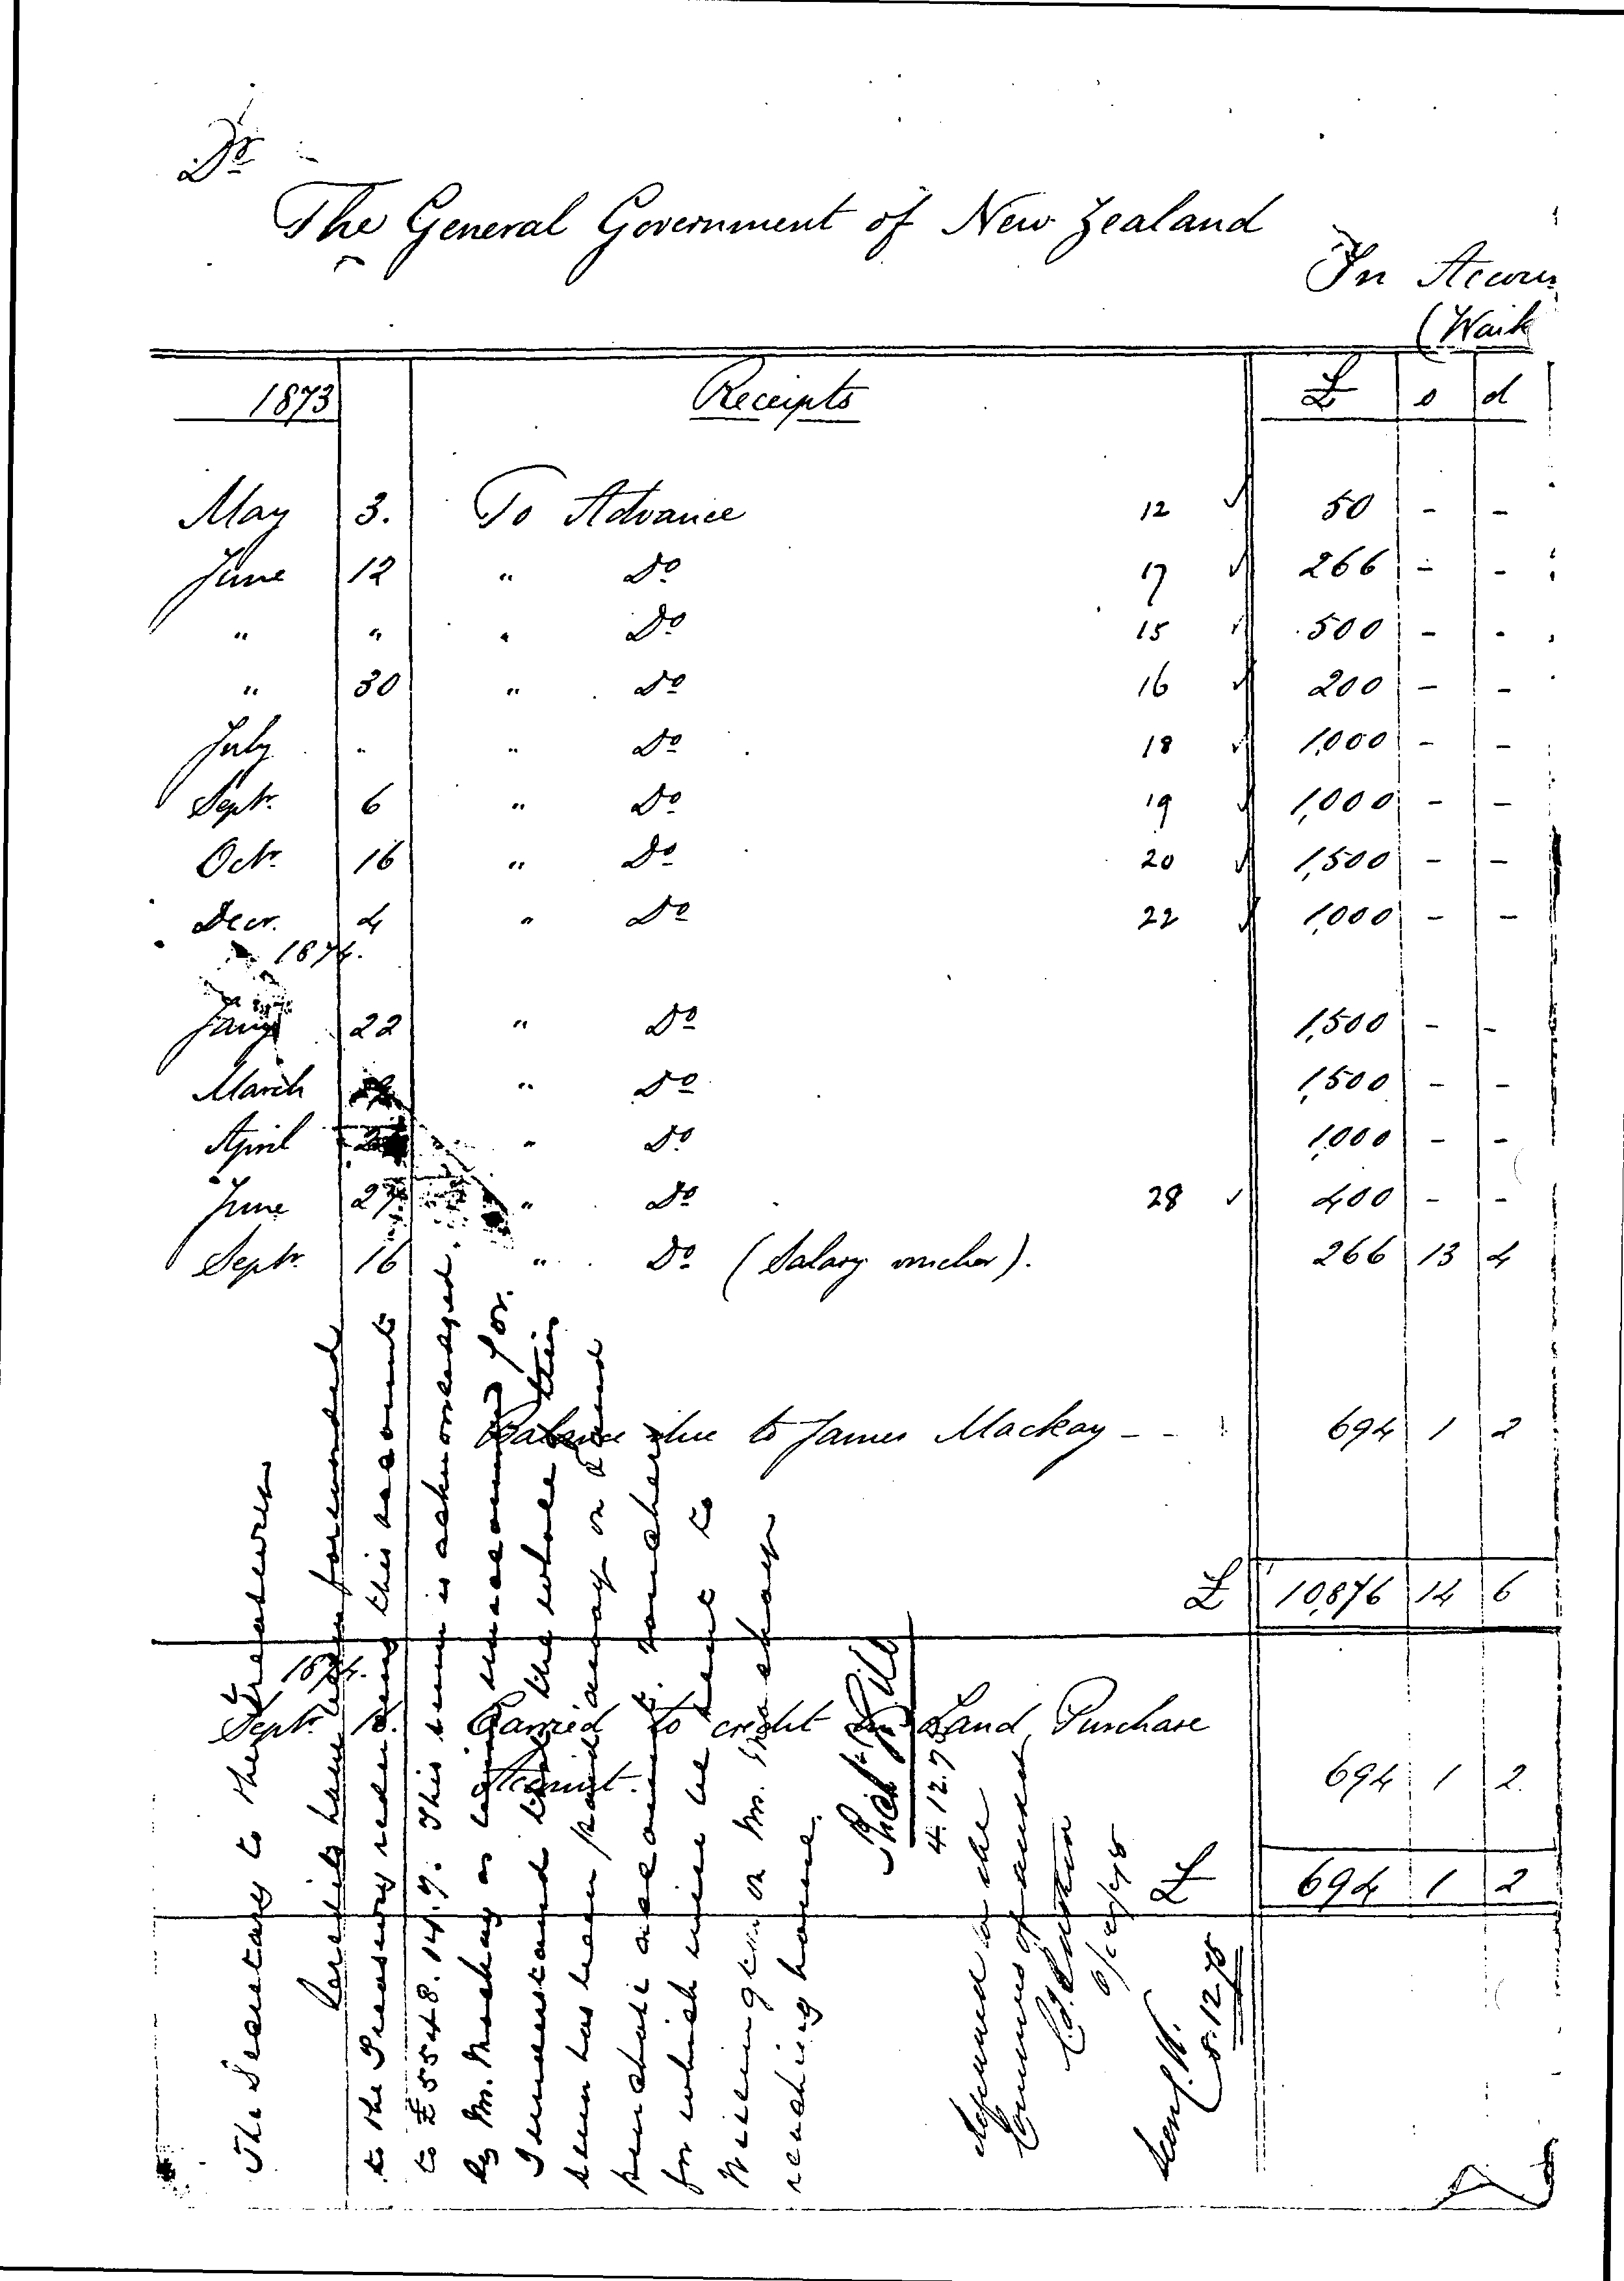 Dr
The General Government of New Zealand
In Accoun
(Waik
1873 Receipts £ s d
May 3. To Advance 12 ✓ 50 - -
June 12 " Do 17 ✓ 266 - -
" " " Do 15 ✓ 500 - -
" 30 " Do 16 ✓ 200 - -
July " " Do 18 ✓ 1,000 - -
Septr. 6 " Do 19 ✓ 1,000 - -
Octr. 16 " Do 20 ✓ 1,500 - -
Decr. 4 " Do 22 ✓ 1,000 - -
1874.
Jany 22 " Do 1,500 - -
March " Do 1,500 - -
April " Do 1,000 - -
June 27 " Do 28 ✓ 400 - -
Septr. 16 " Do (Salary voucher). 266 13 4
Balance due to James Mackay - - 694 1 2
£ 10,876 14 6
1874.
Septr. 16. Carried to credit Land Purchase
Account. 694 1 2
£ 694 1 2
The Secretary to the Treasury
have been forwarded
to the Treasury reducing this account
to £5548.14.7. This sum is acknowledged
by Mr. Mackay as being unaccounted for.
I understand that the whole of this
sum has been paid away on land
purchase account. Vouchers
for which will be sent to
Wellington on Mr. Mackay
reaching home.
4.12.78
Approved by the
Commrs of Audit
6/12/78
5.12.78